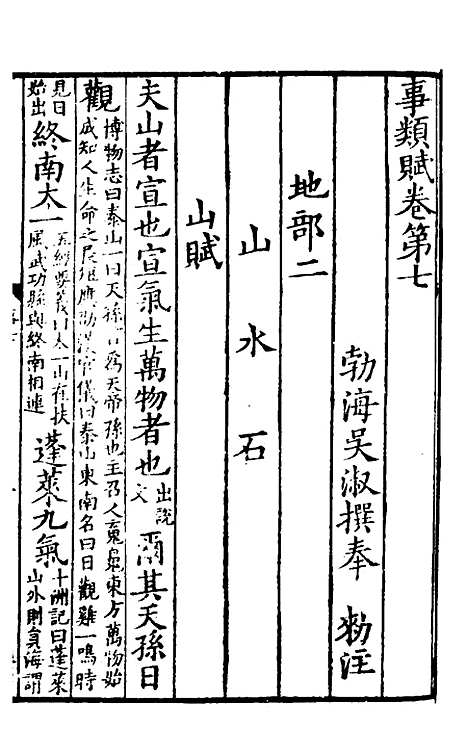 事類賦卷第七
勃海吳淑撰奉 勑注
地部二
山 水 石
山賦
夫山者宣也宣氣生萬物者也出說文爾其天孫日
觀博物志曰泰山一曰天孫言為天帝孫也主召人䰟䰠東方萬物始成知人生命之長短應劭漢官儀曰泰山東南名曰日觀雞一鳴時
見日始出終南太一五經要義曰太一山在扶風武功縣與終南相連蓬萊九氣十洲記曰蓬萊山外別有員海謂